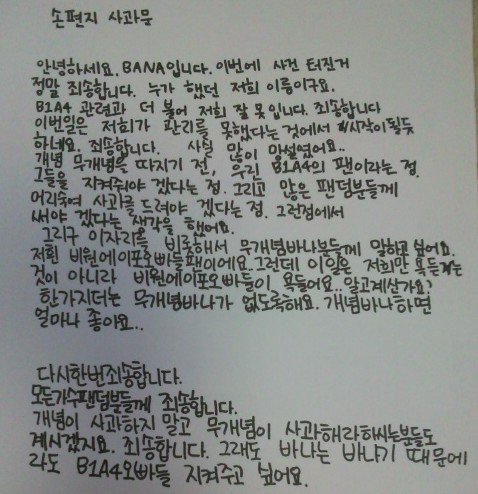 손편지 사과문
안녕하세요. BANA입니다. 이번에 사건 터진거
정말 죄송합니다. 누가 했던 저희 이름이구요.
B1A4 관련과 더 불어 저희 잘못입니다. 죄송합니다
이번일은 저희가 관리를 못했다는 것에서 시작이 될듯
하네요. 죄송합니다. 사실 많이 망설였어요..
개념 무개념을 따지기 전, 우린 B1A4의 팬이라는 점.
그들을 지켜줘야 겠다는 점. 그리고 많은 팬덤분들께
머리숙여 사과를 드려야 겠다는 점. 그런점에서
써야 겠다는 생각을 했어요.
그리구 이자리를 비롯해서 무개념바나분들께 말하고 싶어요.
저흰 비원에이포오빠들팬이에요. 그런데 이일은 저희만 욕듣기는
것이 아니라 비원에이포오빠들이 욕들어요.. 알고계산가요?
한가지더는 무개념바나가 없도록해요. 개념바나하면
얼마나 좋아요..
다시한번죄송합니다.
모든가수팬덤분들께 죄송합니다.
개념이 사과하지 말고 무개념이 사과해라하시는분들도
계시겠지요. 죄송합니다. 그래도 바나는 바나기 때문에
라도 B1A4오빠들 지켜주고 싶어요.